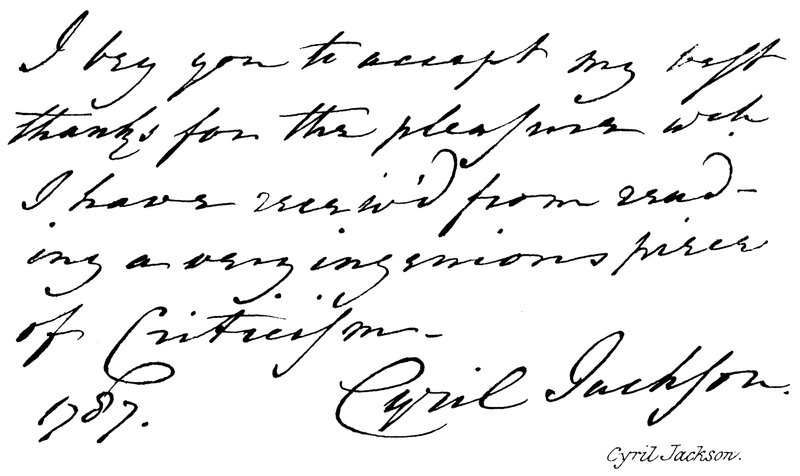 I beg you to accept my best
thanks for the pleaſure wch.
I have receiv'd from read-
ing a very ingenious piece
of Criticiſm -
1787. Cyril Jackſon.
Cyril Jackson.